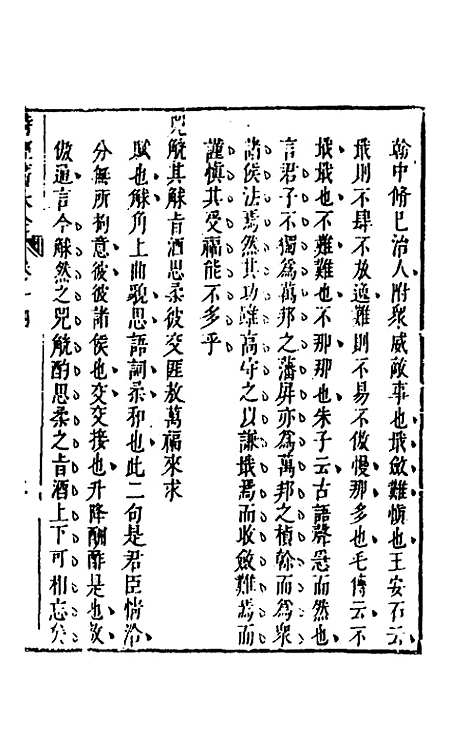 翰中脩已治人附衆威敵事也戢斂難愼也王安石云
戢則不肆不放逸難則不易不傲慢那多也毛傳云不
戢戢也不難難也不那那也朱子云古語聲急而然也
言君子不獨爲萬邦之藩屏亦爲萬邦之楨榦而爲衆
諸侯法焉然其功雖高守之以謙戢焉而收斂難焉而
謹愼其受福能不多乎
兕觥其觩旨酒思柔彼交匪敖萬福來求
賦也觩角上曲貌思語詞柔和也此二句是君臣情洽
分無所拘意彼彼諸侯也交交接也升降酬酢是也敖
傲通言今觩然之兕觥酌思柔之旨酒上下可相忘矣